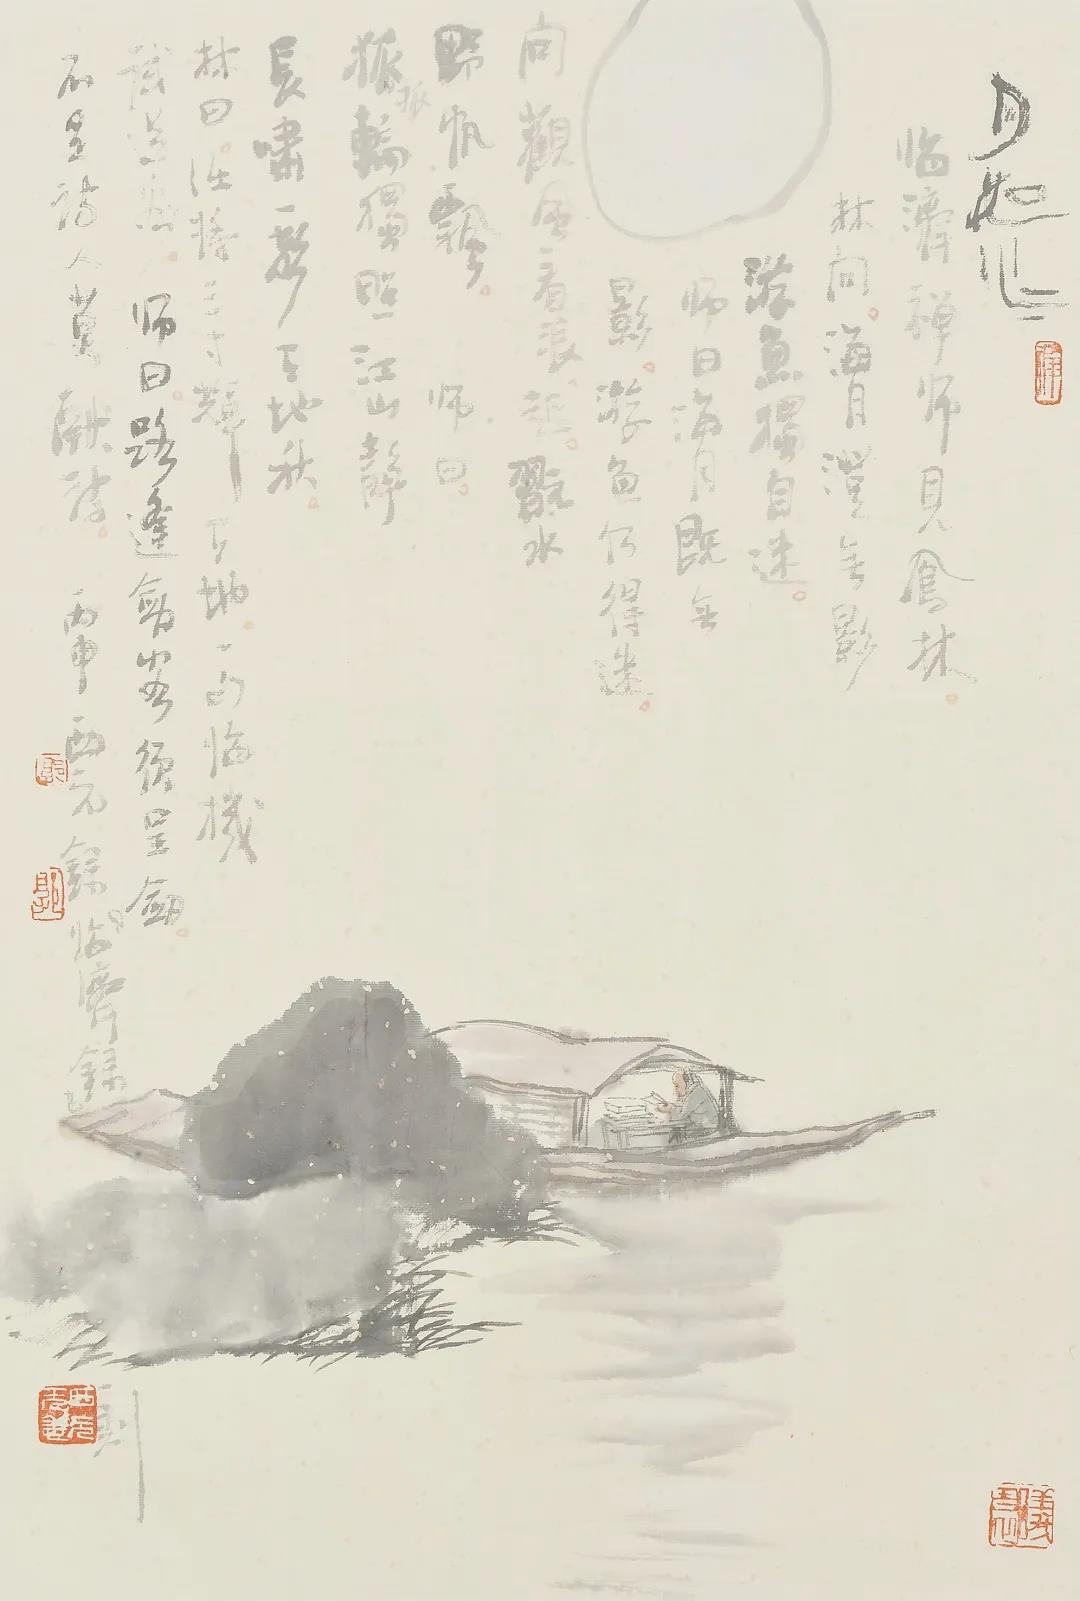 月如
临濟禅师見鳳林。
林问。海月澄无影
游魚獨自迷。
师曰海月既无
影。游魚何得迷。
问觀風看浪起。翫水
野帆飄。师曰。
狐孤輪獨照江山靜
長嘯一聲天地秋。
林曰。任將三寸輝天地。一句临機
試道看。师曰。路逢劍客須呈劍。
不是詩人莫献詩。丙申西元錄临濟錄
一則